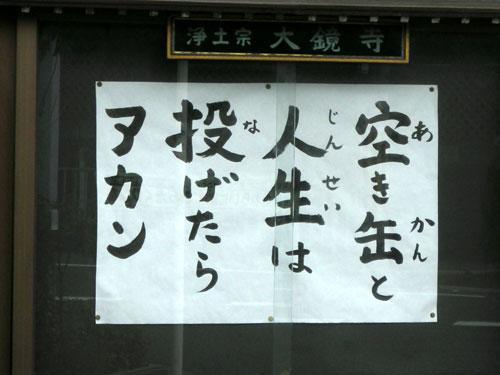 浄土宗 大鏡寺
空き缶と
あ かん
人生は
じんせい
投げたら
な
アカン